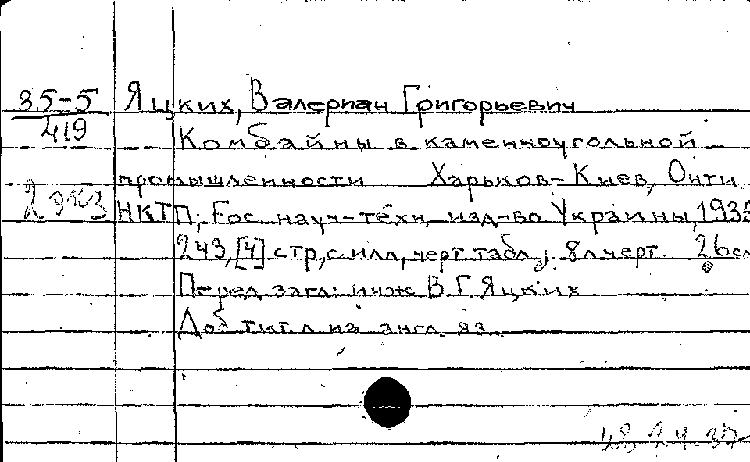 35-5 Яцких, Валериан Григорьевич
419 Комбайны в каменноугольной
промышленности Харьков-Киев, Онти
2 экз НКТП, Гос. науч-техн. изд-во Украины, 1935
243, [4] стр, с илл, черт табл; 8 л черт. 26см
Перед загл: инж В. Г. Яцких
Доб тит л на англ яз.